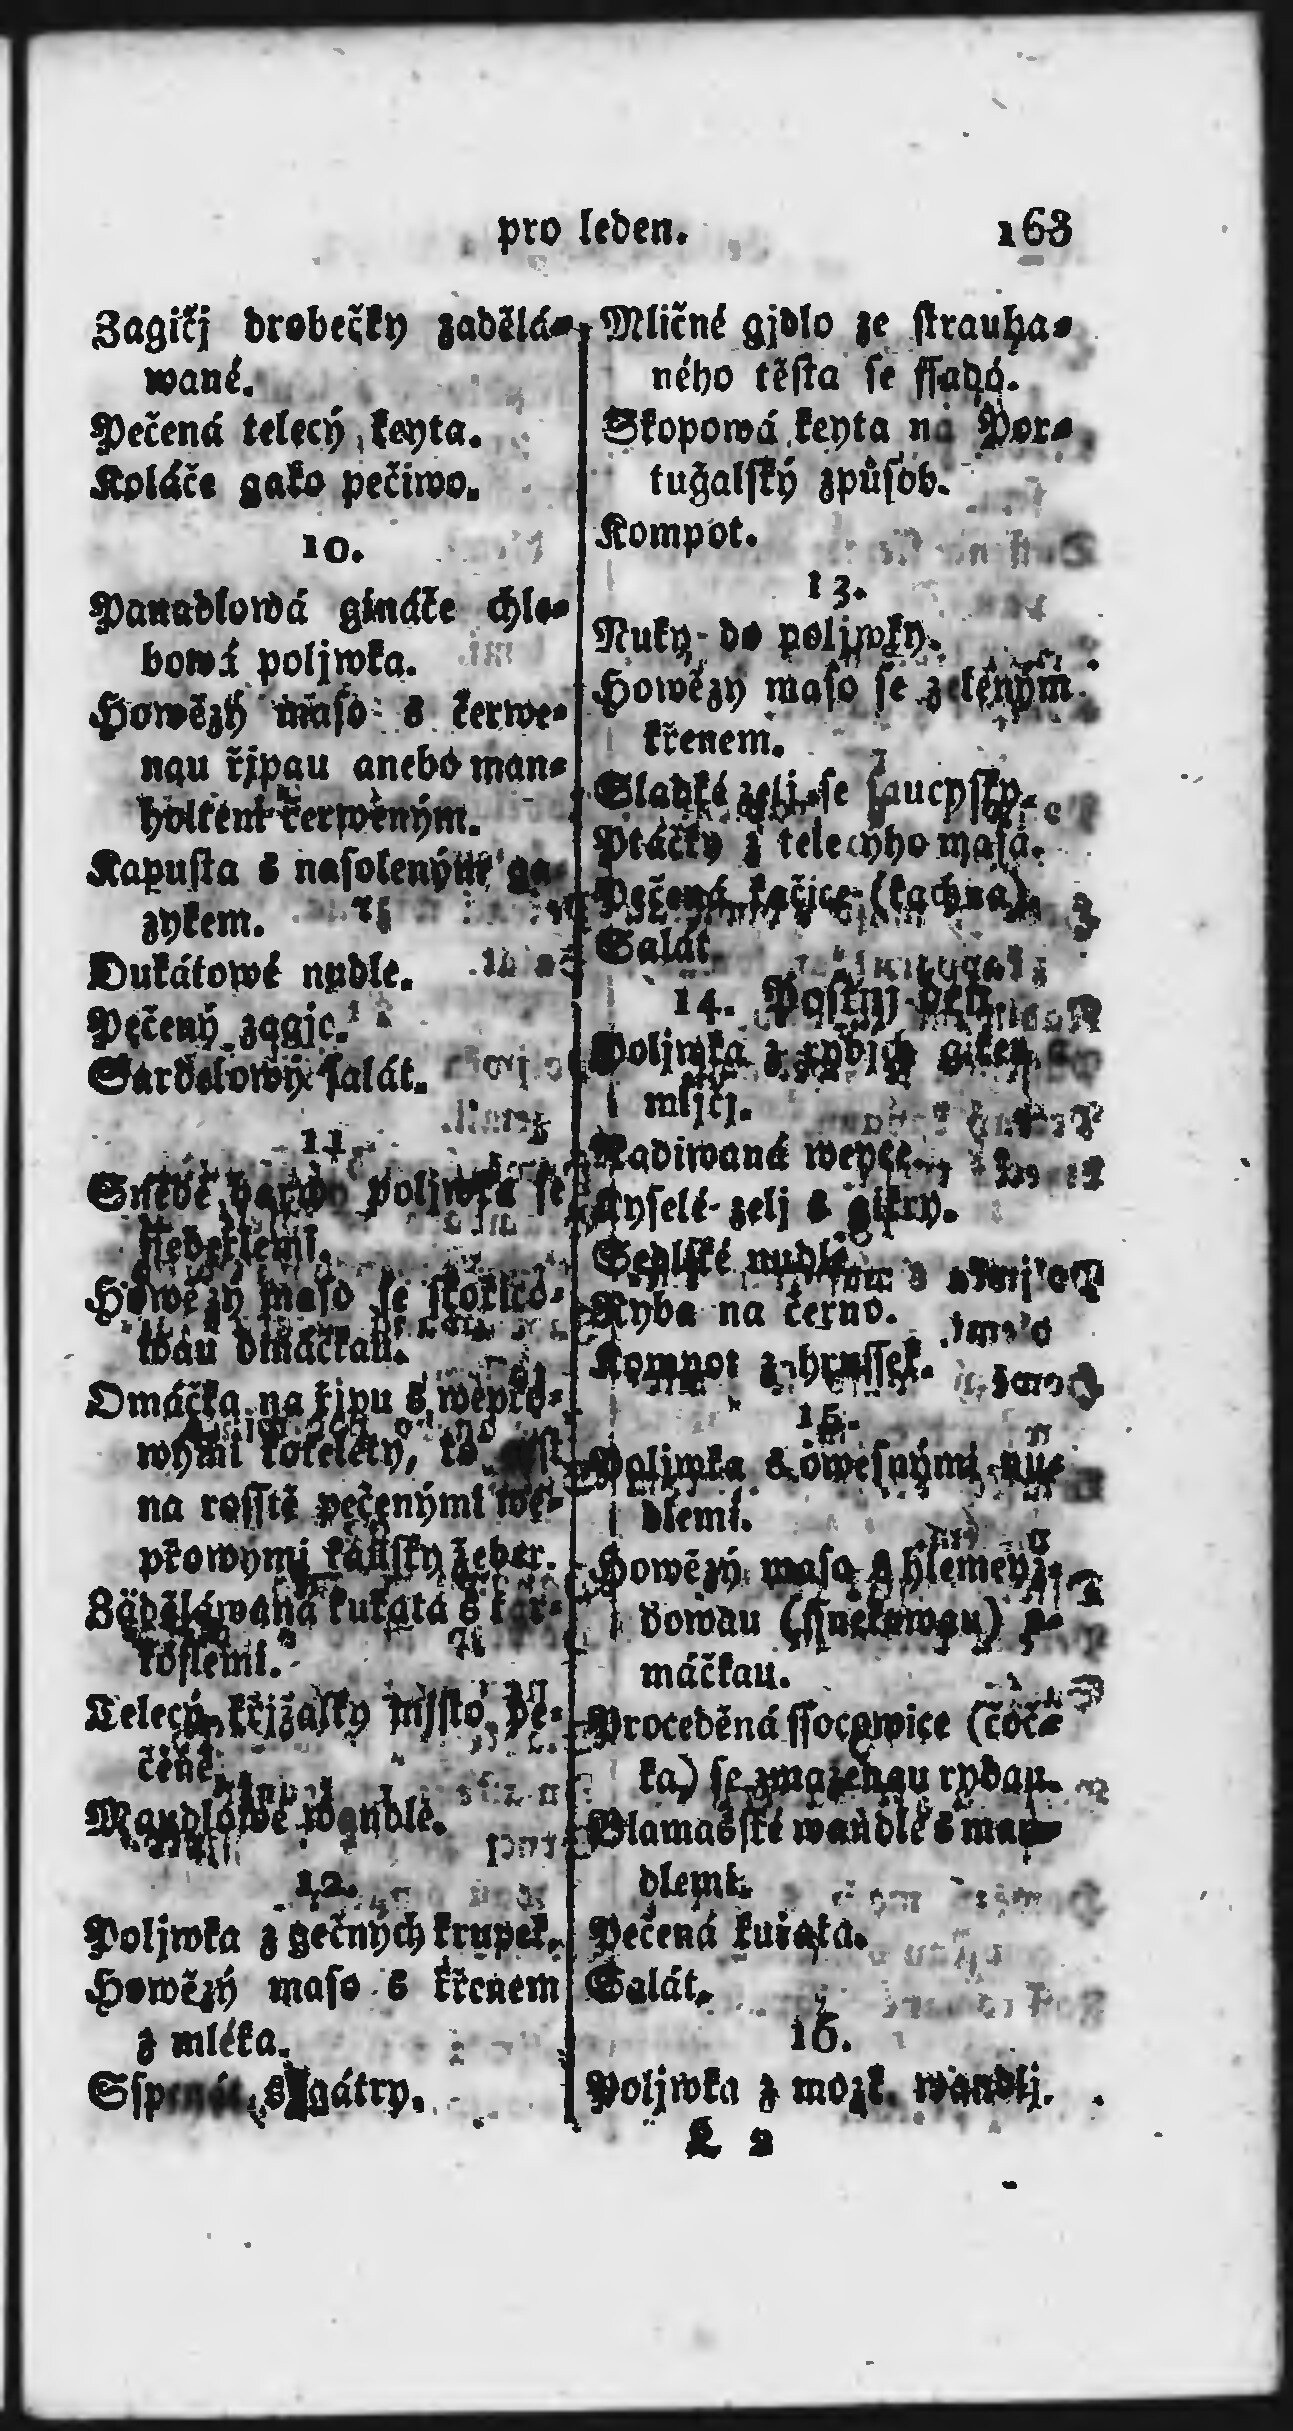 pro leden. 163
Zagičj drobečky zadělá-
wané.
Pečená telecý keyta.
Koláče gako pečiwo.
10.
Panadlowá gináče chle-
bowá poljwka.
Howězý maso s čerwe-
nau řjpau anebo man-
holtem čerweným.
Kapusta s nasoleným ga-
zykem.
Dukátowé nudle.
Pečený zagjc.
Sardelowý salát.
11.
Snědě barwy poljwka se
Howězý maso se
wau omáčkau.
Omáčka na řjpu s wepřo-
wými koteléty, to gest
na rosstě pečenými we-
přowými kausky žeber.
Zadělawaná kuřata s kar-
fioslemi.
Telecý křjžalky mjsto pe-
čeně.
Mandlowé wandle.
12.
Poljwka z gečných krupek.
Howězý maso s křenem
z mléka.
Sspenát s gátry.
Mličné gjdlo ze strauha-
ného těsta se ssadó.
Skopowá keyta na Por-
tugalský způsob.
Kompot.
13.
Nuky do poljwky.
Howězý maso se zeleným
křenem.
Sladké zelj se saucysky.
Ptáčky z telecýho masa.
Pečená kačice (kachna).
Salát
14. Postnj den.
Poljwka z rybjch giker a
mljčj.
Nadiwaná weyce.
Kyselé zelj s gikry.
Sedlské nudle.
Ryba na černo.
Kompot z hrussek.
15.
Poljwka s owesnými nu-
dlemi.
Howězý maso s hlemeyž-
dowau (ssnekowau) o-
máčkau.
Proceděná ssocowice (čoč-
ka) se smaženau rybau.
Blamasské wandle s man-
dlemi.
Pečená kuřata.
Salát.
16.
Poljwka z mozk. wandlj.
L 2